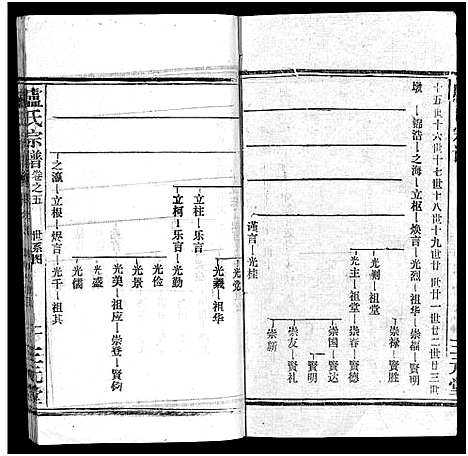 十五世十六世十七世十八世十九世廿世廿一世廿二世廿三世
墩—錦浩—之海—立枢—焕言—光烈—祖华—崇福—賢明
崇禄—賢胜
光测—祖堂
光主—祖堂—崇春—賢德
崇国—賢达
賢明
崇友—賢礼
崇新
谨言—光桂
三元堂
光党
光羲—祖华
立柱—乐言
立柯—乐言—光勤
光俭
光景
光美—祖应—崇登—賢鈞
光盛
光儒
之瀛—立枢—煖言—光千—祖其
盧氏宗譜
卷之五
世系图
三元堂